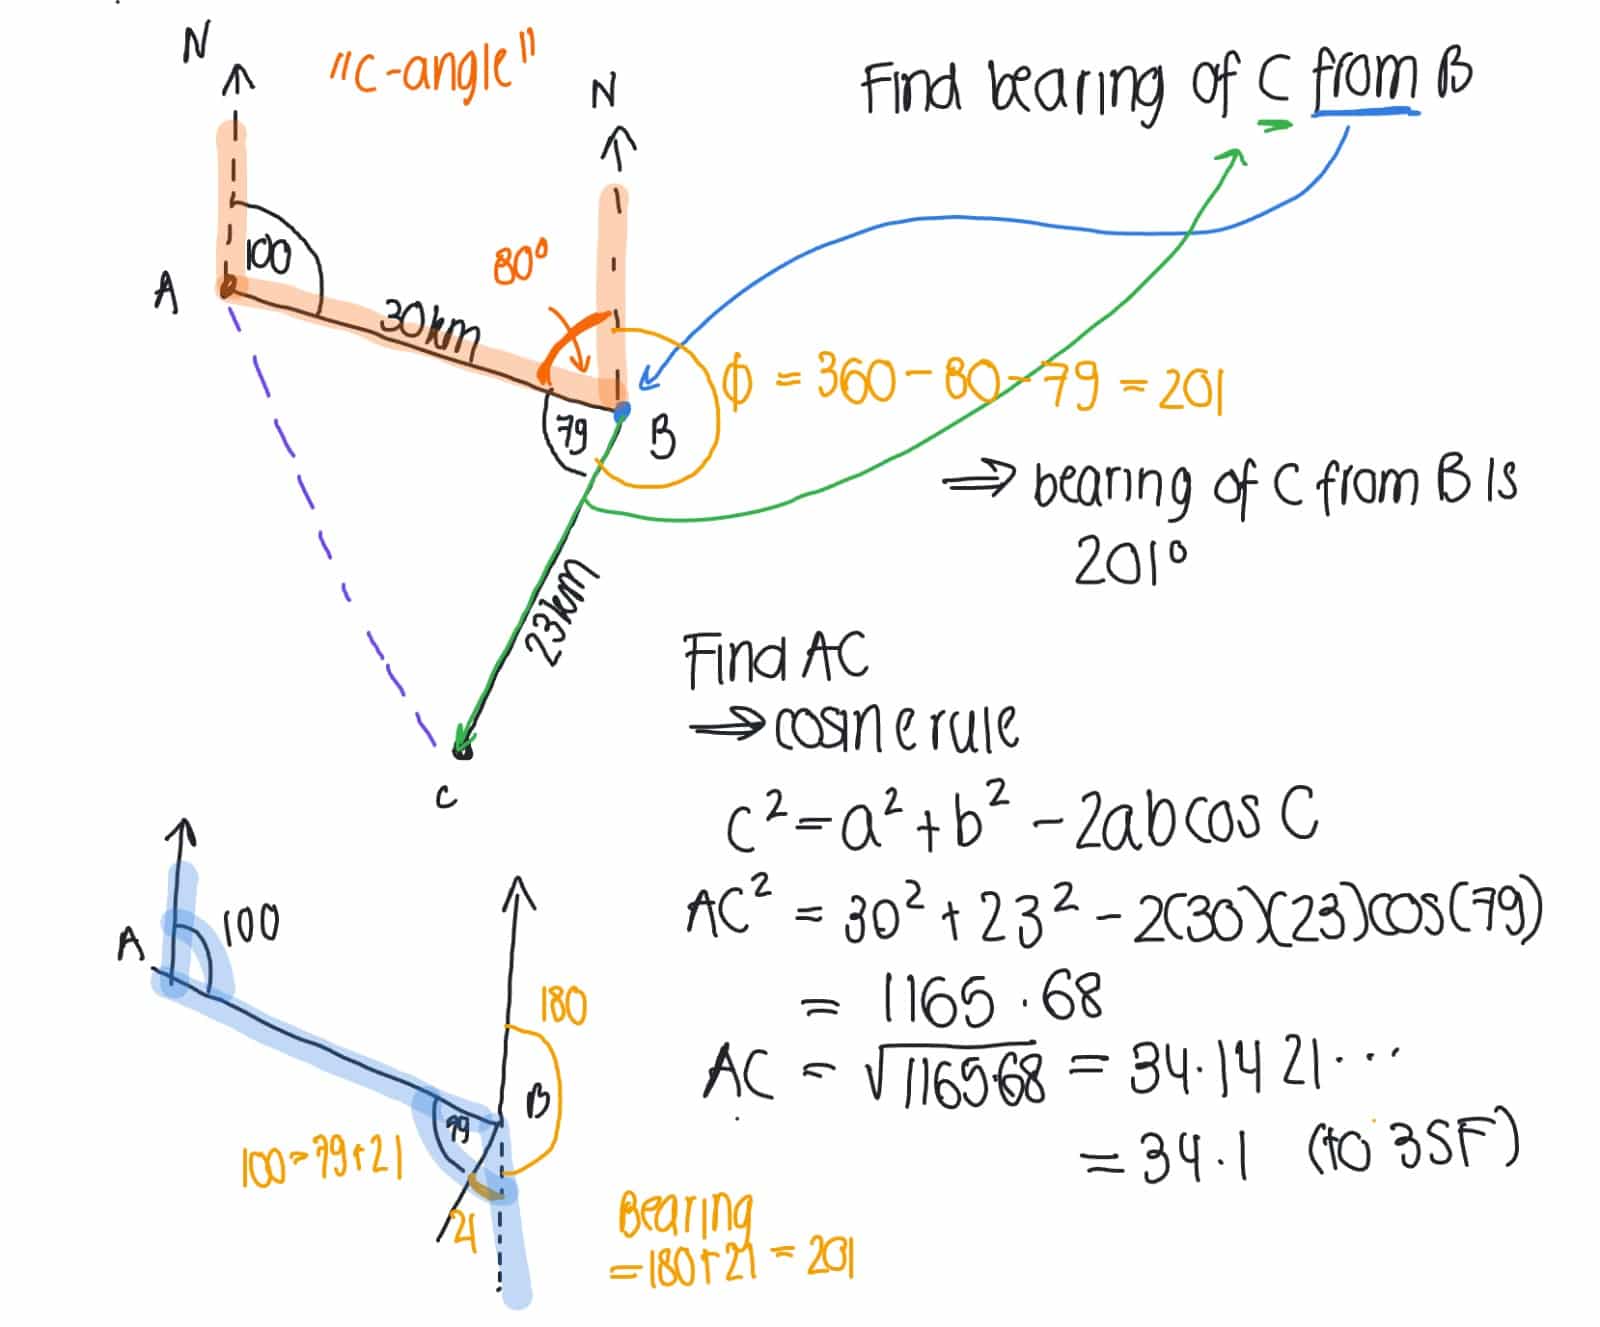 N
"C-angle"
N
Find bearing of C from B
100
A
80°
30km
79
B
ϕ = 360 - 80 - 79 = 201
⟹ bearing of C from B is
201°
23km
C
Find AC
⟹ cosine rule
c² = a² + b² - 2ab cos C
AC² = 30² + 23² - 2(30)(23)cos(79)
= 1165.68
AC = √1165.68 = 34.1421...
= 34.1 (to 3SF)
A
100
180
B
79
100 = 79 + 21
21
Bearing
= 180 + 21 = 201